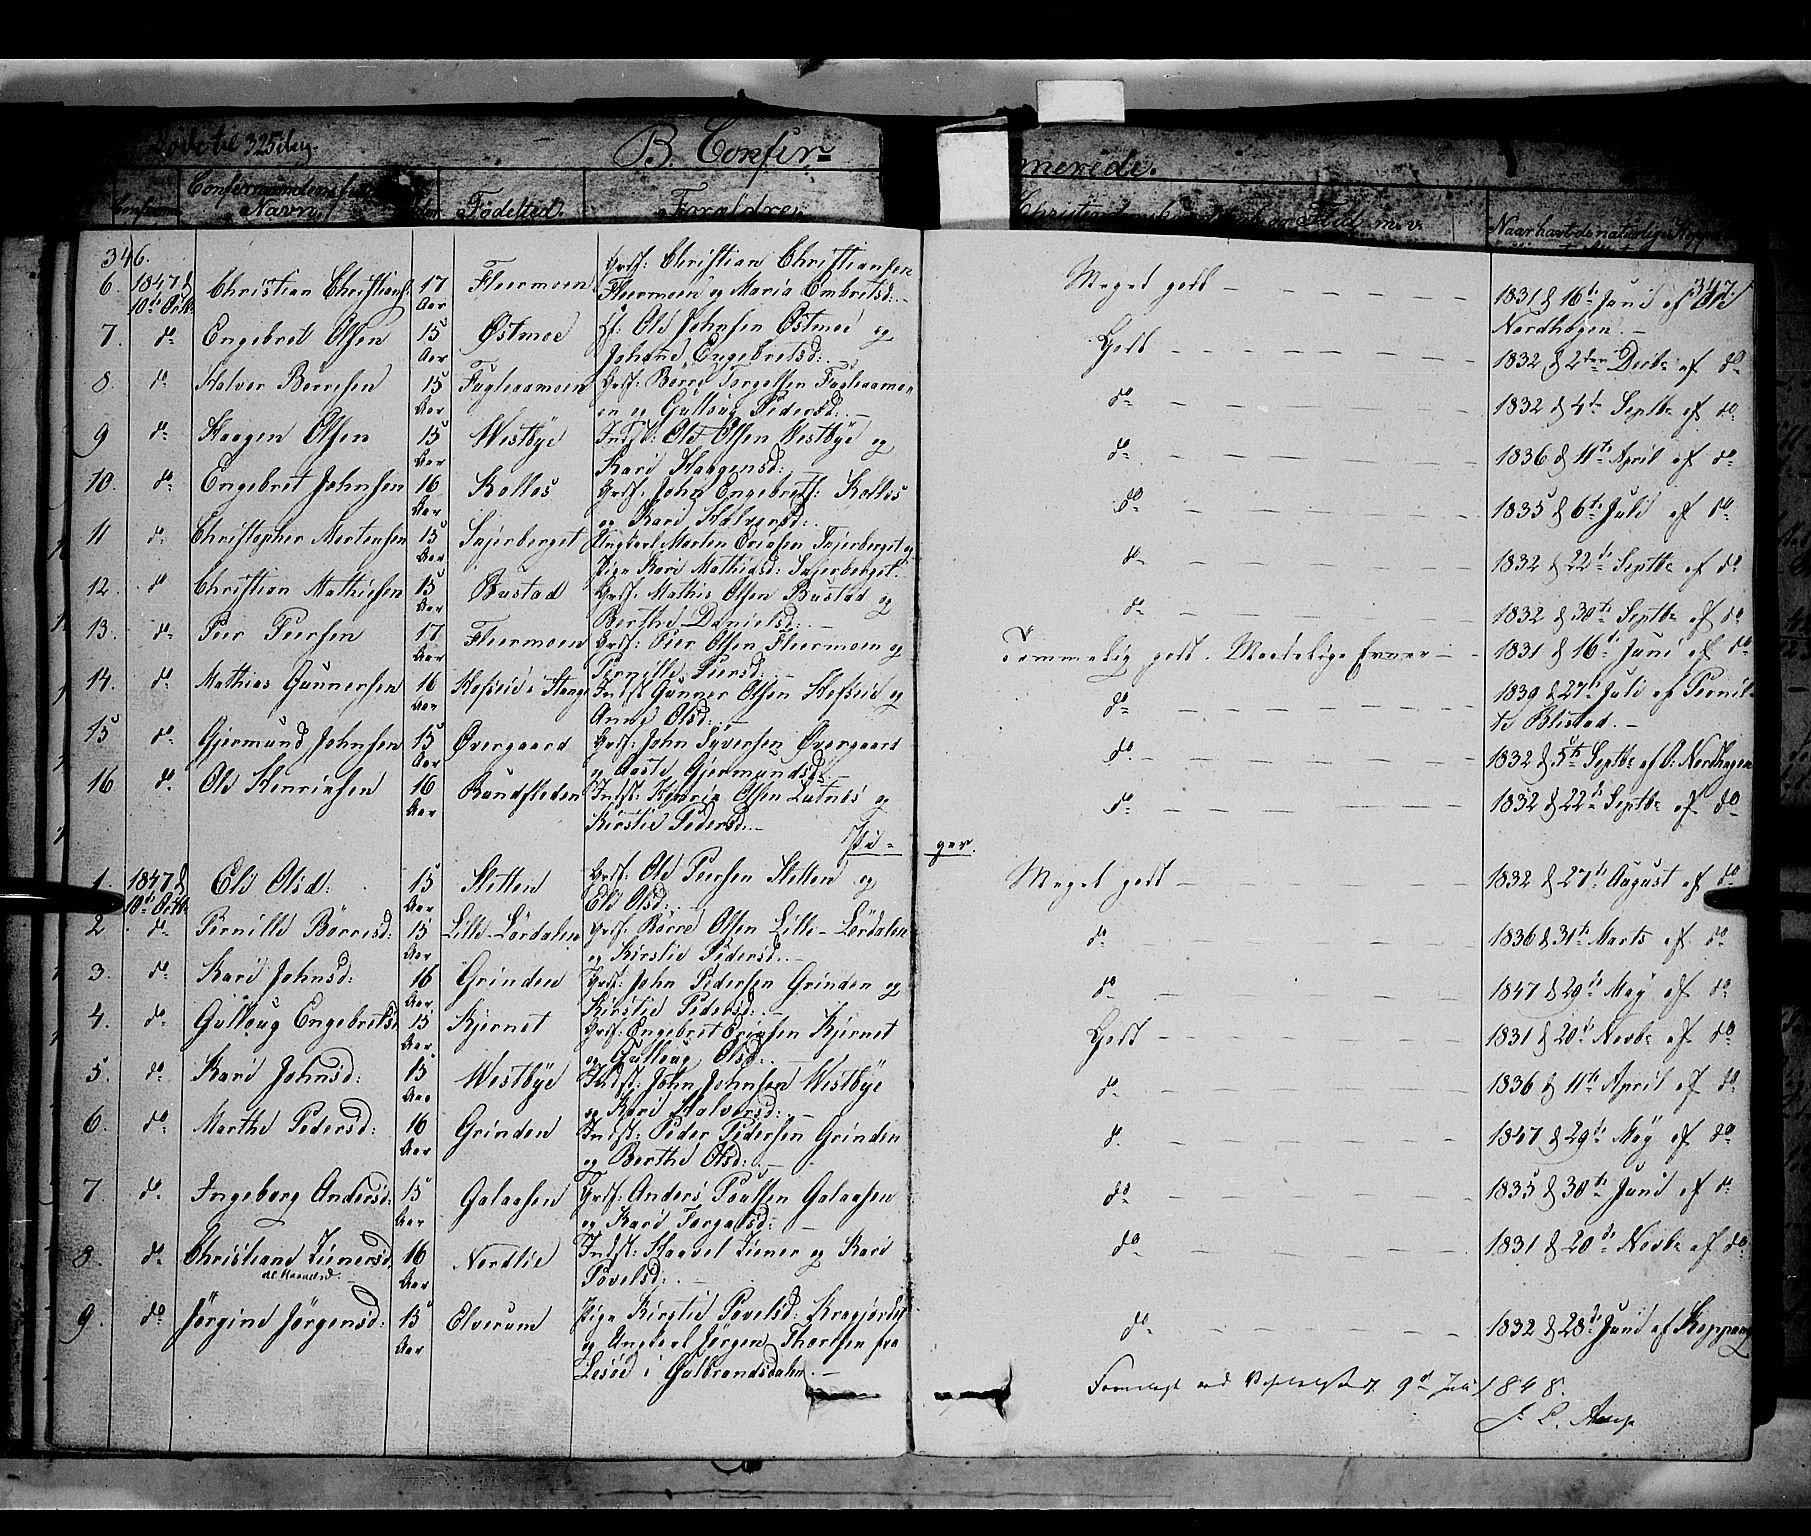 B. Confir=
merede.
Confirmandens fulde
Navn.
Fødested.
Forældre.
346.
347
6. 1847 d 10de Octbr Christian Christians: 17 Aar Flermoen Grdf: Christian Christiansen
Flermoen og Maria Embretsd:
Meget godt
1831 d 16de Juni af Ole
Nordhagen.
7. do Engebret Olsen 15 Aar Østmoe Ole Johnsen Østmoe og
Johanne Engebretsd:
Godt
1832 d 2den Decbr af do
8. do Halvor Børresen 15 Aar Fugleaamoen Grdf: Børre Torgalsen Fugleaamo-
en og Gulloug Pedersd:
do
1832 d 4de Septbr af do
9 do Haagen Olsen 15 Aar Westbye Indst: Ole Olsen Westbye og
Kari Haagensd:
do
1836 d 11te April af do
10. do Engebret Johnsen 16 Aar Kolles Grdf. John Engebretss: Kolles
og Kari Halvorsd:
do
1835 d 6te Juli af do
11 do Christopher Mortensen 15 Aar Snerberget Ungkarl Morten Ericsen Snerberget og
Pige Kari Mathiasd: Snerberget.
do
1832 d 22de Septbr af do
12. do Christian Mathisen 15 Aar Bustad Grdf. Mathis Olsen Bustad og
Berthe Danielsd:
do
1832 d 30te Septbr af do
13. do Peer Peersen 17 Aar Flermoen Grdf: Peer Olsen Flermoen og
Pernille Peersd:
Temmelig godt. Maadelige Evner
1831 d 16de Juni af do
14. do Mathias Gunnersen 16 Aar Hofseie i Stange Indst Gunner Olsen Hofseie og
Anne Olsd:
do
1839 d 27de Juli af Pernil-
le Blistad.
15 do Gjermund Johnsen 15 Aar Øvergaard Grdf: John Syversen Øvergaard
og Aaste Gjermundsd:
do
1832 d 5te Septbr af O: Nordhagen
16 do Ole Henriksen 16 Aar Rundfloden Indst: Henric Olsen Lutnes og
Kirstie Pedersd:
do
1832 d 22de Septbr af do
Pi- ger.
1. 1847 d 10de Octbr Eli Olsd: 15 Aar Sletten Grdf: Ole Peersen Sletten og
Eli Olsd:
Meget godt
1832 d 27de August af do
2 do Pernille Børresd: 15 Aar Lille-Lørdalen Grdf: Børre Olsen Lille-Lørdalen
og Kirstie Pedersd:
do
1836 d 31te Marts af do
3. do Kari Johnsd: 16 Aar Grinden Grdf: John Pedersen Grinden og
Kirstie Pedersd:
do
1847 d 29de May af do
4. do Gulloug Engebretsd 15 Aar Kjernet Grdf: Engebret Ericsen Kjernet
og Gulloug Olsd:
Godt
1831 d 20de Novbr af do
5. do Kari Johnsd: 15 Aar Westbye Indst: John Johnsen Westbye
og Kari Halvorsd:
do
1836 d 11te April af do
6. do Marthe Pedersd: 16 Aar Grinden Indst: Peder Pedersen Grinden
og Berthe Olsd:
do
1847 d 29de May af do
7. do Ingeborg Andersd: 15 Aar Galaasen Grdf: Anders Poulsen Galaasen
og Kari Torgalsd:
do
1835 d 30te Juni af do
8. do Christiane Iversd. 16 Aar Nordlie Indst: og Kari
Povelsd:
do
1831 d 20de Novbr af do
9. do Jørgine Jørgensd: 15 Aar Elverum Pige Kirstie Povelsd:
og Ungkarl Jørgen Thorsen fra
Lesøe i Gulbrandsdalen.
do
1832 d 28de Juni af Koppang
9de Juli 1848.